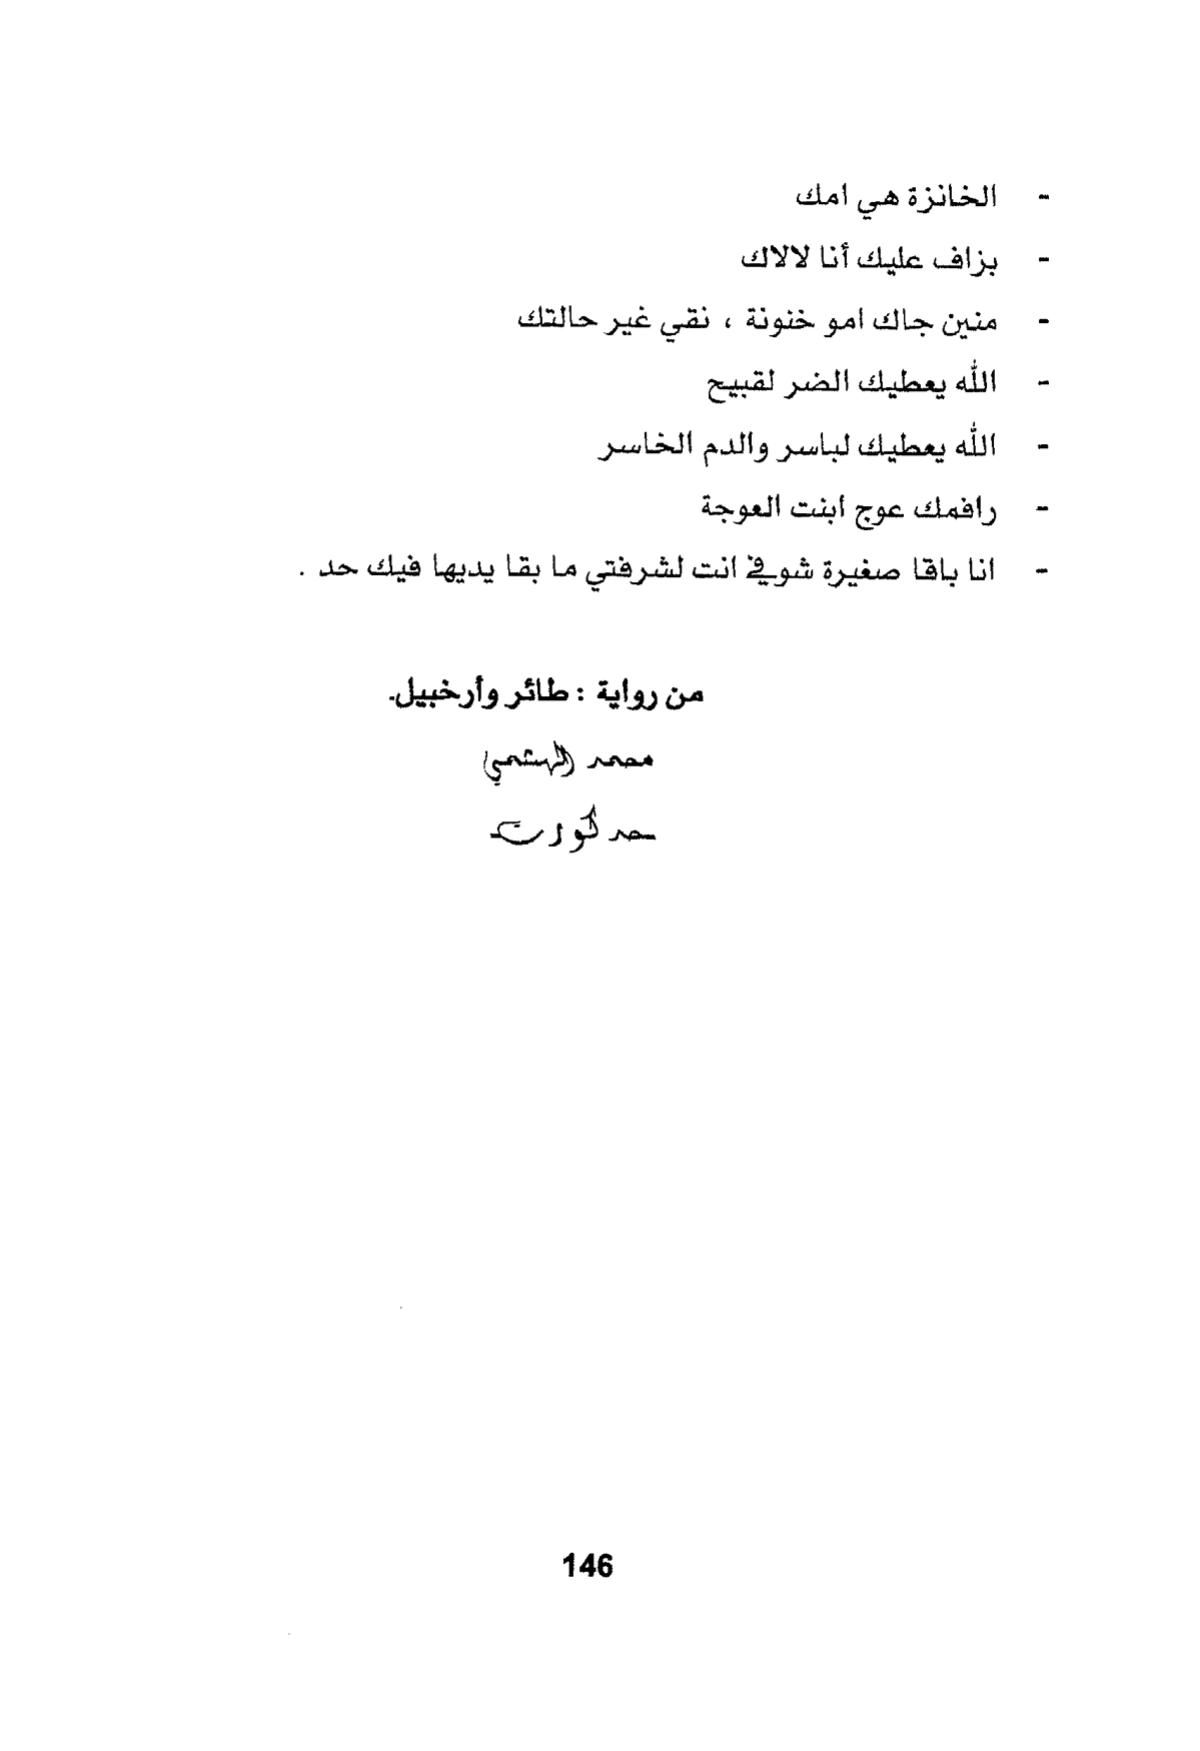 - الخانزة هي امك
- بزاف عليك أنا لالاك
- منين جاك امو خنونة ، نقي غير حالتك
- الله يعطيك الضر لقبيح
- الله يعطيك لباسر والدم الخاسر
- رافمك عوج ابنت العوجة
- انا باقا صغيرة شوفي انت لشرفتي ما بقا يديها فيك حد .
من رواية : طائر وأرخبيل.
محمد الهشمي
146